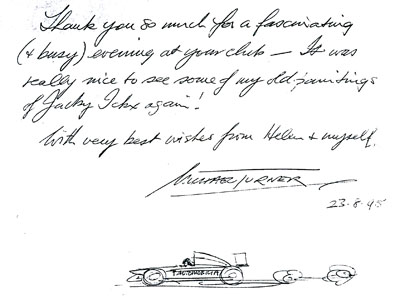 Thank you so much for a fascinating
(& busy) evening at your club — It was
really nice to see some of my old paintings
of Jacky Ickx again!
With very best wishes from Helen & myself.
MICHAEL TURNER
23-8-95